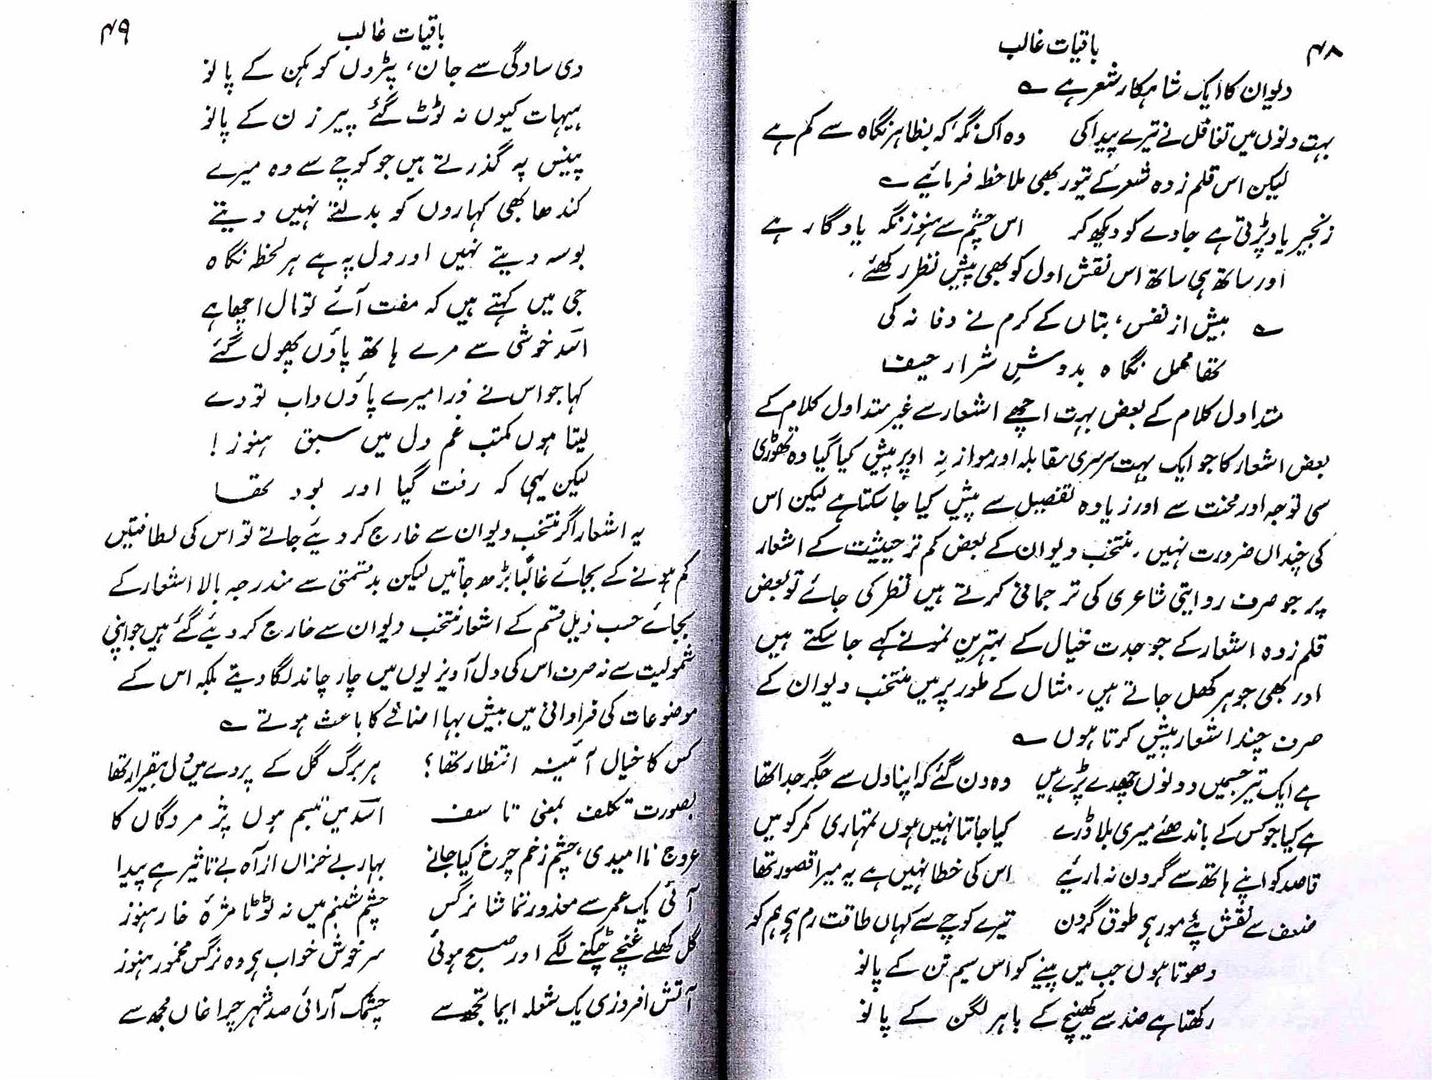 ۴۸
باقیات غالب
دیوان کا ایک شاہکار شعر ہے ؎
بہت دنوں میں تغافل نے تیرے پیدا کی وہ اک نگہ کہ بظاہر نگاہ سے کم ہے
لیکن اس قلم زدہ شعر کے تیور بھی ملاحظہ فرمائیے ؎
زنجیر یاد پڑتی ہے جادے کو دیکھ کر اس چشم سے ہنوز نگہ یادگار ہے
اور ساتھ ہی ساتھ اس نقش اول کو بھی پیش نظر رکھئے ۔
؎ بیش از نفس، بتاں کے کرم نے وفا نہ کی
تھا محمل نگاہ بدوشِ شرار حیف
متداول کلام کے بعض بہت اچھے اشعار سے غیر متداول کلام کے
بعض اشعار کا جو ایک بہت سرسری مقابلہ اور موازنہ اوپر پیش کیا گیا وہ تھوڑی
سی توجہ اور محنت سے اور زیادہ تفصیل سے پیش کیا جا سکتا ہے لیکن اس
کی چنداں ضرورت نہیں۔ منتخب دیوان کے بعض کم تر حیثیت کے اشعار
پر جو صرف روایتی شاعری کی ترجمانی کرتے ہیں نظر کی جائے تو بعض
قلم زدہ اشعار کے جو جدت خیال کے بہترین نمونے کہے جا سکتے ہیں
اور بھی جوہر کھل جاتے ہیں۔ مثال کے طور پر میں منتخب دیوان کے
صرف چند اشعار پیش کرتا ہوں ؎
ہے ایک تیر جسمیں دونوں چھدے پڑے ہیں وہ دن گئے کہ اپنا دل سے جگر جدا تھا
ہے کیا جو کس کے باندھئے میری بلا ڈرے کیا جانتا نہیں ہوں تمہاری کمر کو میں
قاصد کو اپنے ہاتھ سے گردن نہ ماریئے اس کی خطا نہیں ہے یہ میرا قصور تھا
ضعف سے نقش پئے مور ہی طوق گردن تیرے کوچے سے کہاں طاقت رم ہی ہم کو
دھوتا ہوں جب میں پینے کو اس سیم تن کے پانو
رکھتا ہے ضد سے کھینچ کے باہر لگن کے پانو
۴۹
باقیات غالب
دی سادگی سے جان، پڑوں کوہکن کے پانو
ہیہات کیوں نہ ٹوٹ گئے پیر زن کے پانو
پینس پہ گذرتے ہیں جو کوچے سے وہ میرے
کندھا بھی کہاروں کو بدلنے نہیں دیتے
بوسہ دیتے نہیں اور دل پہ ہے ہر لحظہ نگاہ
جی میں کہتے ہیں کہ مفت آئے تو مال اچھا ہے
اسد خوشی سے مرے ہاتھ پاؤں پھول گئے
کہا جو اس نے ذرا میرے پاؤں داب تو دے
لیتا ہوں مکتب غم دل میں سبق ہنوز !
لیکن یہی کہ رفت گیا اور بود تھا
یہ اشعار اگر منتخب دیوان سے خارج کر دیئے جاتے تو اس کی لطافتیں
کم ہونے کے بجائے غالباً بڑھ جاتیں لیکن بدقسمتی سے مندرجہ بالا اشعار کے
بجائے حسب ذیل قسم کے اشعار منتخب دیوان سے خارج کر دیئے گئے ہیں جو اپنی
شمولیت سے نہ صرف اس کی دل آویزیوں میں چار چاند لگا دیتے بلکہ اس کے
موضوعات کی فراوانی میں بیش بہا اضافے کا باعث ہوتے ؎
کس کا خیال آئینہ انتظار تھا؟ ہر برگ گل کے پردے میں دل بیقرار تھا
بصورت تکلف بمعنی تاسف اسد میں تبسم ہوں پژمردگاں کا
عروج ناامیدی، چشم زخم چرخ کیا جانے بہار بے خزاں از آہ بے تاثیر ہے پیدا
آئی یک عمر سے معذور تماشا نرگس چشم شبنم میں نہ ٹوٹا مژہ خار ہنوز
گل کھلے غنچے چٹکنے لگے اور صبح ہوئی سر خوش خواب ہی وہ نرگس مخمور ہنوز
آتش افروزی یک شعلہ ایما تجھ سے چشمک آرائی صد شہر چراغاں مجھ سے